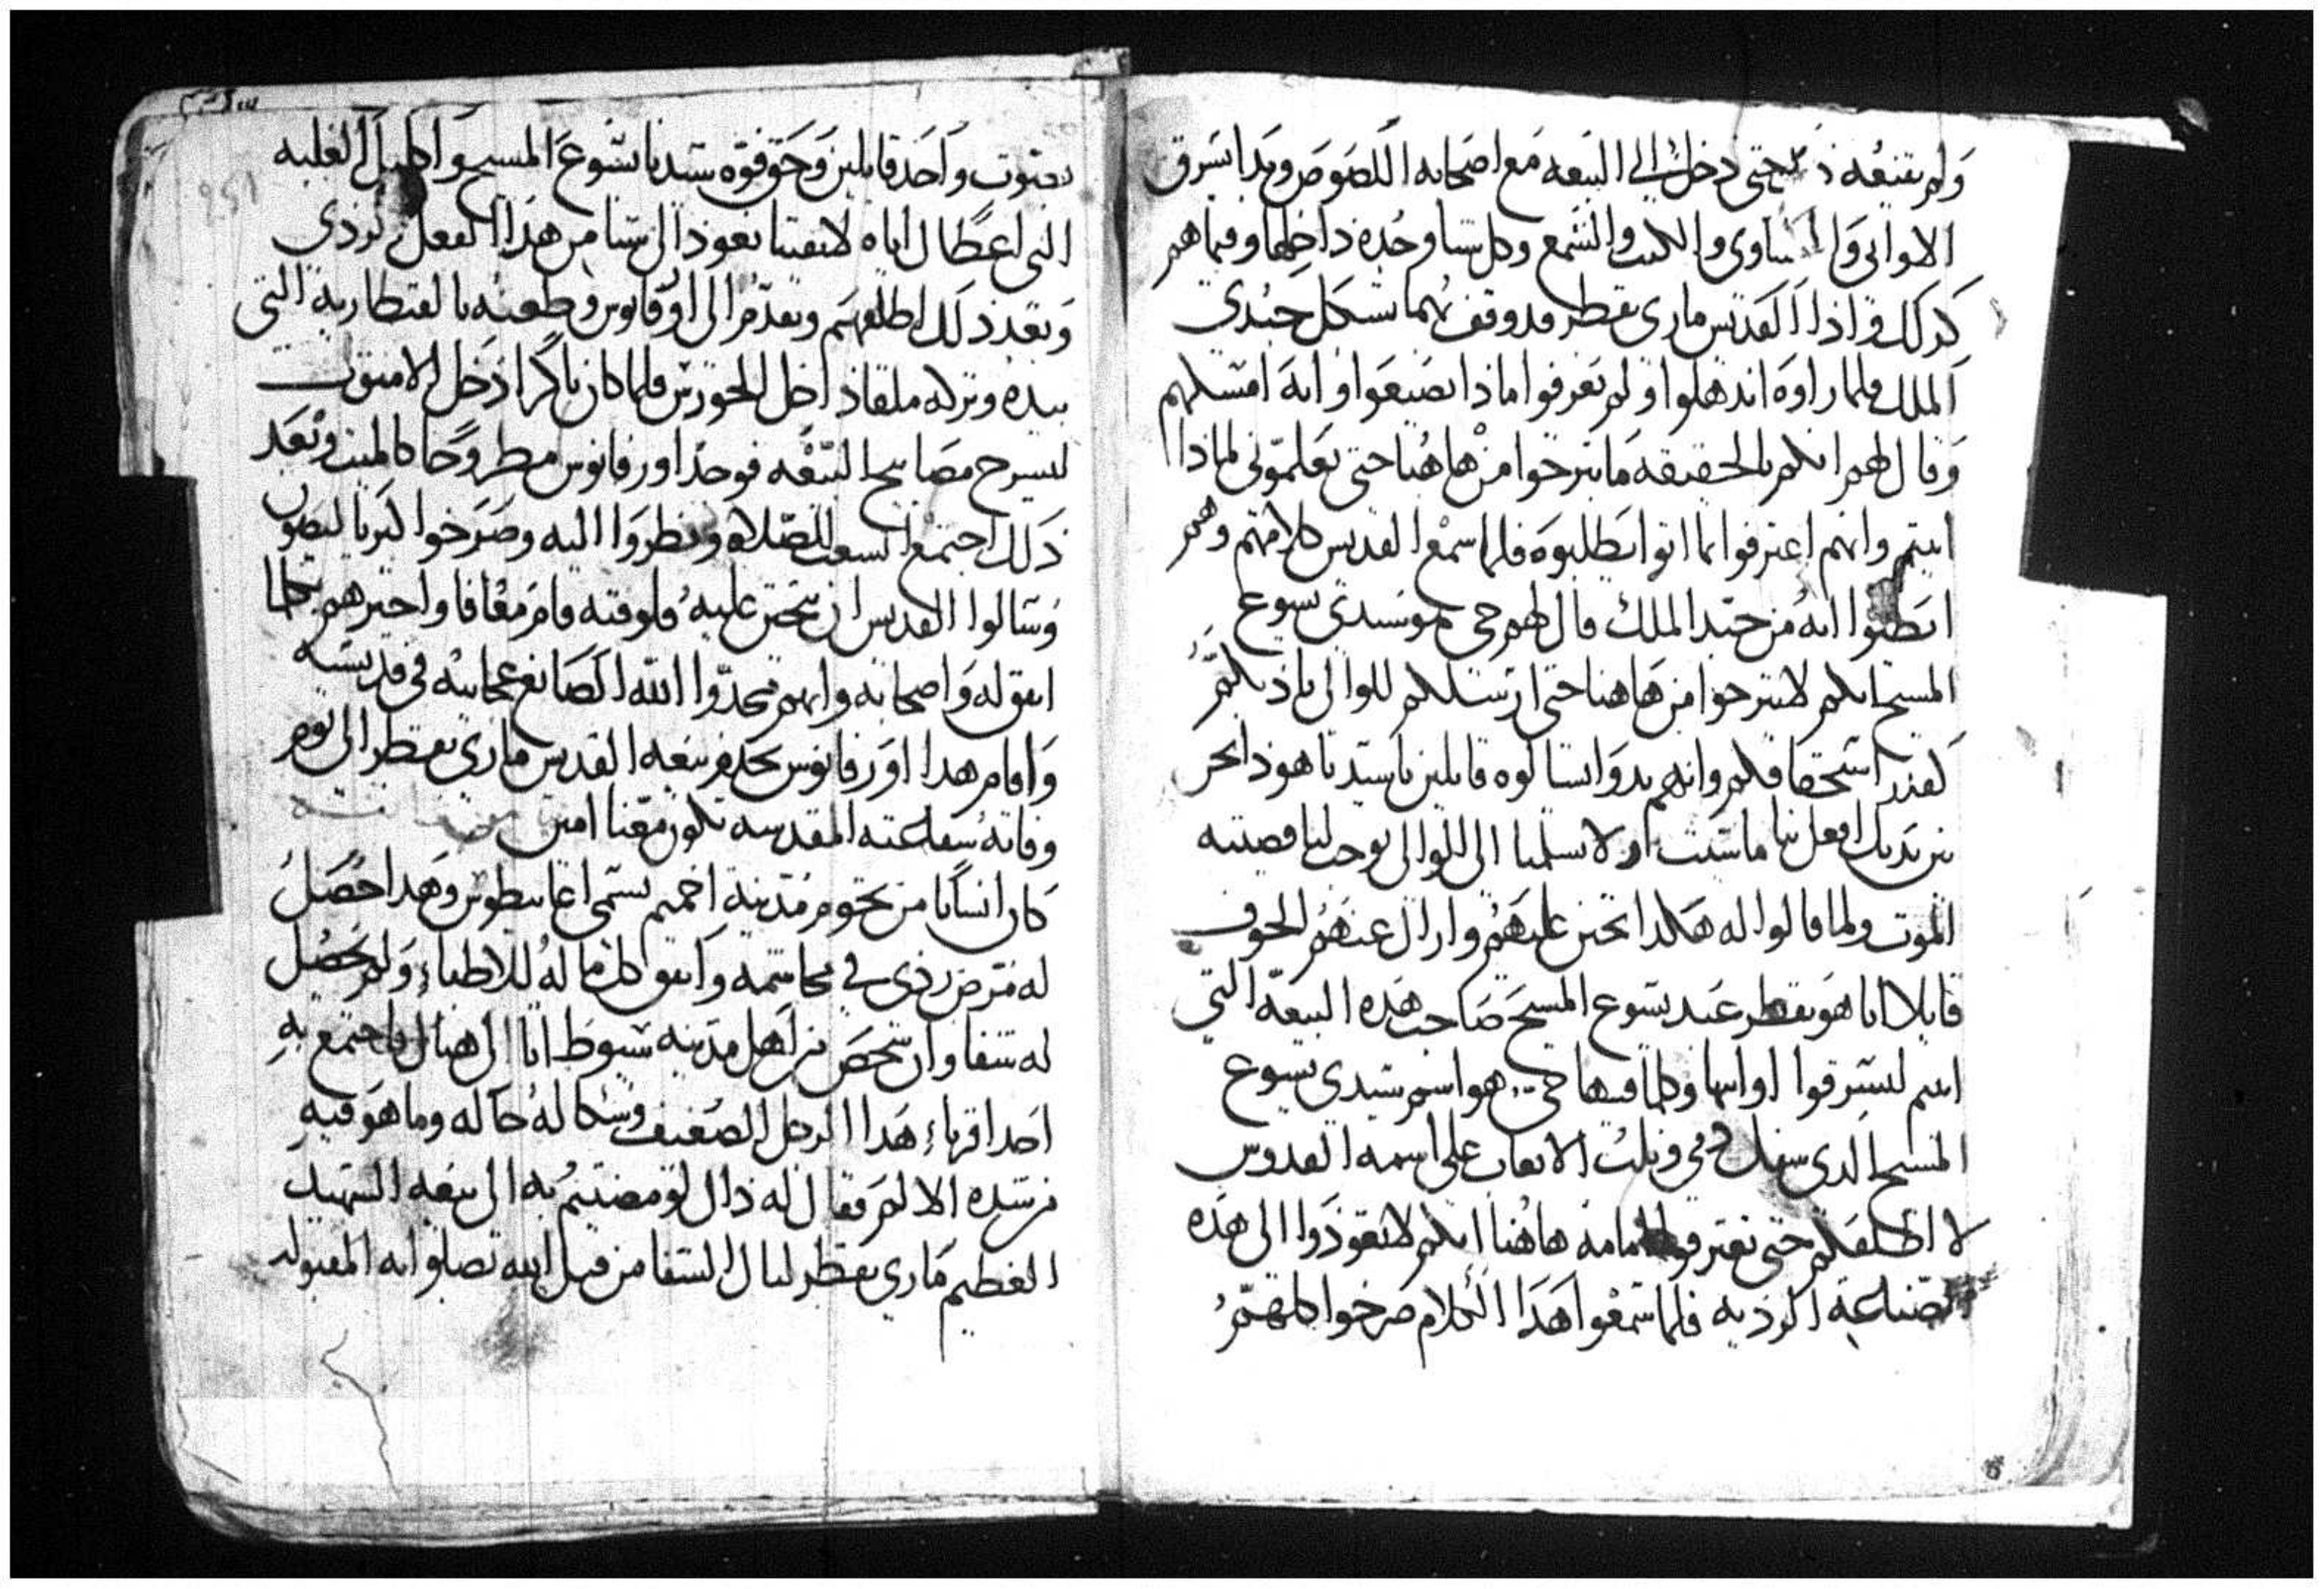 ولم يقنعه ذلك حتى دخل الى البيعه مع اصحابه اللصوص وبدا يسرق
الاواني والكساوى والكتب والشمع وكل شيا وجده داخلها وفيما هم
كدلك واذا القديس ماري بقطر قد وقف بهما بشكل جندي
الملك فلما راوه اندهلوا ولم يعرفوا ماذا يصنعوا وانه امتسلهم
وقال لهم انكم بالحقيقه ما تبرحوا من هاهنا حتى تعلموني لماذا
اتيتم وانهم اعترفوا بما اتوا يطلبوه فلما سمع القديس كلامهم وهم
ايظنوا انه من جند الملك قال لهم حي هو سيدي يسوع
المسيح انكم لا تبرحوا من هاهنا حتى ارسلكم للوالي ياذبكم
كقدر استحقاقكم وانهم بدوا يسالوه قايلين يا سيدنا هوذا نحن
بين يديك افعل بنا ما شيت ولا تسلمنا الى للوالي يوجب لنا قضيته
الموت ولما قالوا له هكدا تحنن عليهم وازال عنهم الخوف
قايلا انا هو بقطر عبد يسوع المسيح صاحب هده البيعه التي
اتيتم لتسرقوا اوانيها وكلما فيها حي هو اسم سيدي يسوع
المسيح الدي سفك دمي ونلت الاتعاب على اسمه القدوس
لا اطلقكم حتى تعترفوا امامه هاهنا انكم لا تعودوا الى هده
الصناعة الرديه فلما سمعوا هدا الكلام صرخوا كلهم
بصوت واحد قايلين وحق قوة سيدنا يسوع المسيح واكليل الغلبه
التي اعطا لك اياه لا بقينا نعود الى شيا من هدا الفعل الردي
وبعد ذلك اطلقهم وتقدم الى اورفانوس وطعنه بالقنطاريه التي
بيده وتركه ملقا داخل الخورس فلما كان باكرا دخل الامنوت
ليسرح مصابيح البيعه فوجد اورفانوس مطروحا كالميت وبعد
ذلك اجتمع الشعب للصلاه ونظروا اليه وصرخوا كيرياليصون
وسالوا القديس ان يتحنن عليه فلوقته قام معافا واخبرهم بكلما
اتفق له واصحابه وانهم مجدوا الله الصانع عجايبه في قديسه
واقام هدا اورفانوس يخدم بيعه القديس ماري بقطر الى يوم
وفاته شفاعته المقدسه تكون معنا امين
كان انسانا من تخوم مدينة اخميم يسمى اغابيطوس وهدا حصل
له مرض ردى في مجاسمه وانفق كل ما له للاطباء ولم يحصل
له شفا وان شخص من اهل مدينه سيوط اتا الى هناك فاجتمع به
احد اقرباء هدا الرجل الضعيف وشكا له حاله وما هو فيه
من شده الالم فقال له ذاك لو مضيتم به الى بيعه الشهيد
العظيم ماري بقطر لنال الشفا من قبل الله بصلواته المقبوله